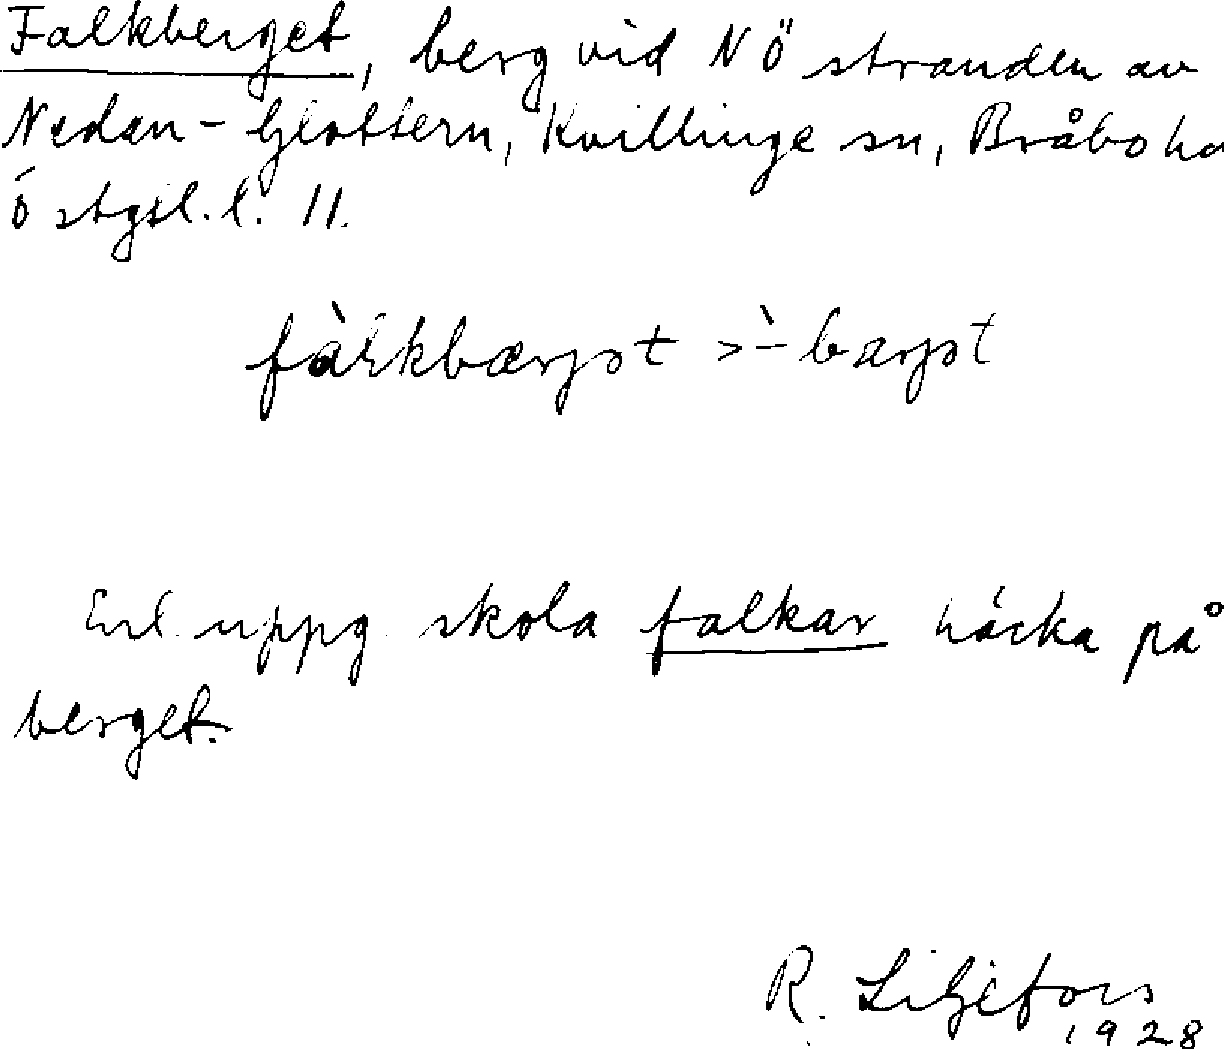 Falkberget, berg vid NÖ stranden av
Nedan-Glottern, Kvillinge sn, Bråbo hd
Östgöl. l. 11.
fàlkbærjət >̀- bærjət
Enl. uppg skola falkar häcka på
berget.
R. Liljefors
1928